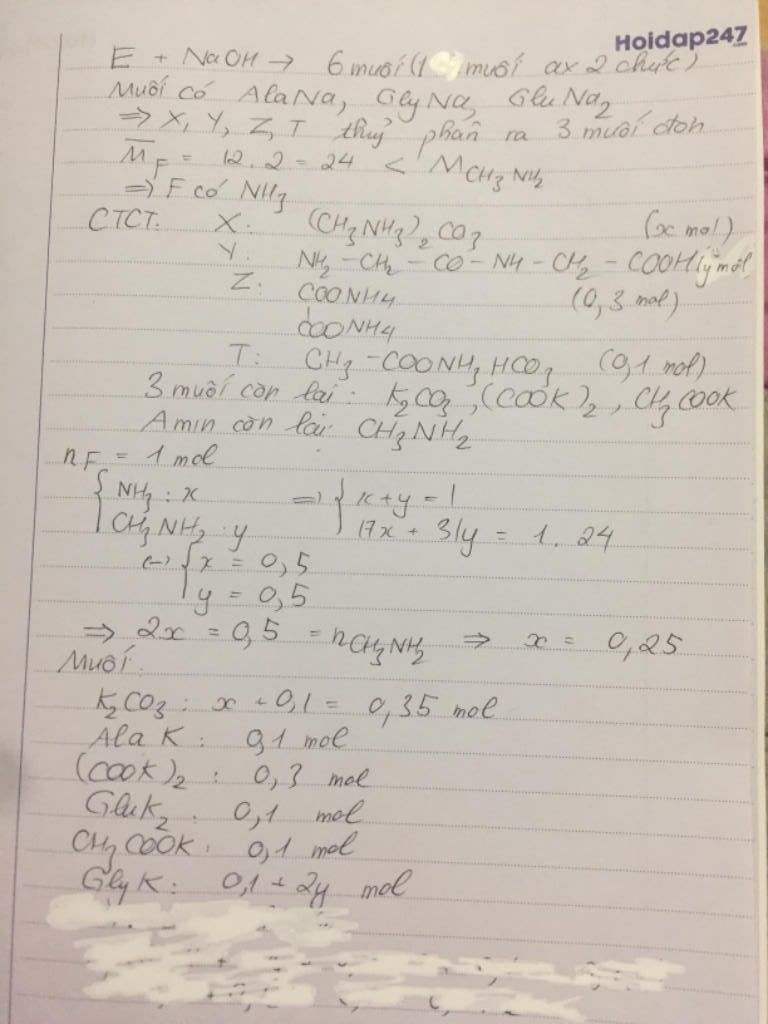 Hoidap247.com
E + NaOH → 6 muối (1 muối ax 2 chức)
Muối có AlaNa, GlyNa, GluNa2
⇒ X, Y, Z, T thuỷ phân ra 3 muối đơn
M̄F = 12.2 = 24 < MCH3NH2
⇒ F có NH3
CTCT: X: (CH3NH3)2CO3 (x mol)
Y: NH2 - CH2 - CO - NH - CH2 - COOH (y mol)
Z: COONH4 (0,3 mol)
COONH4
T: CH3 - COONH3HCO3 (0,1 mol)
3 muối còn lại: K2CO3, (COOK)2, CH3COOK
Amin còn lại: CH3NH2
nF = 1 mol
{ NH3 : x ⇒ { x + y = 1
CH3NH2 : y 17x + 31y = 1. 24
(→ { x = 0,5
y = 0,5
⇒ 2x = 0,5 = nCH3NH2 ⇒ x = 0,25
Muối:
K2CO3 : x + 0,1 = 0,35 mol
AlaK : 0,1 mol
(COOK)2 : 0,3 mol
GluK2 : 0,1 mol
CH3COOK : 0,1 mol
GlyK : 0,1 + 2y mol